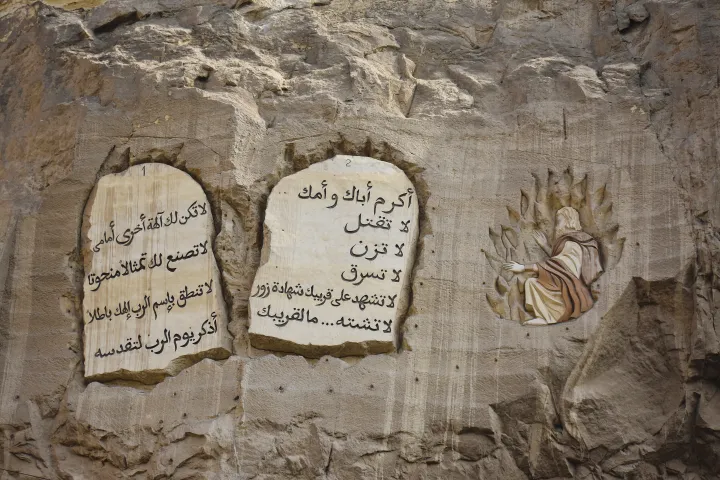 1
لا تكن لك آلهة أخرى أمامي
لا تصنع لك تمثالاً منحوتا
لا تنطق بإسم الرب إلهك باطلا
أذكر يوم الرب لتقدسه
2
أكرم أباك و أمك ..
لا تقتل
لا تزن
لا تسرق
لا تشهد على قريبك شهادة زور
لا تشته... ما لقريبك